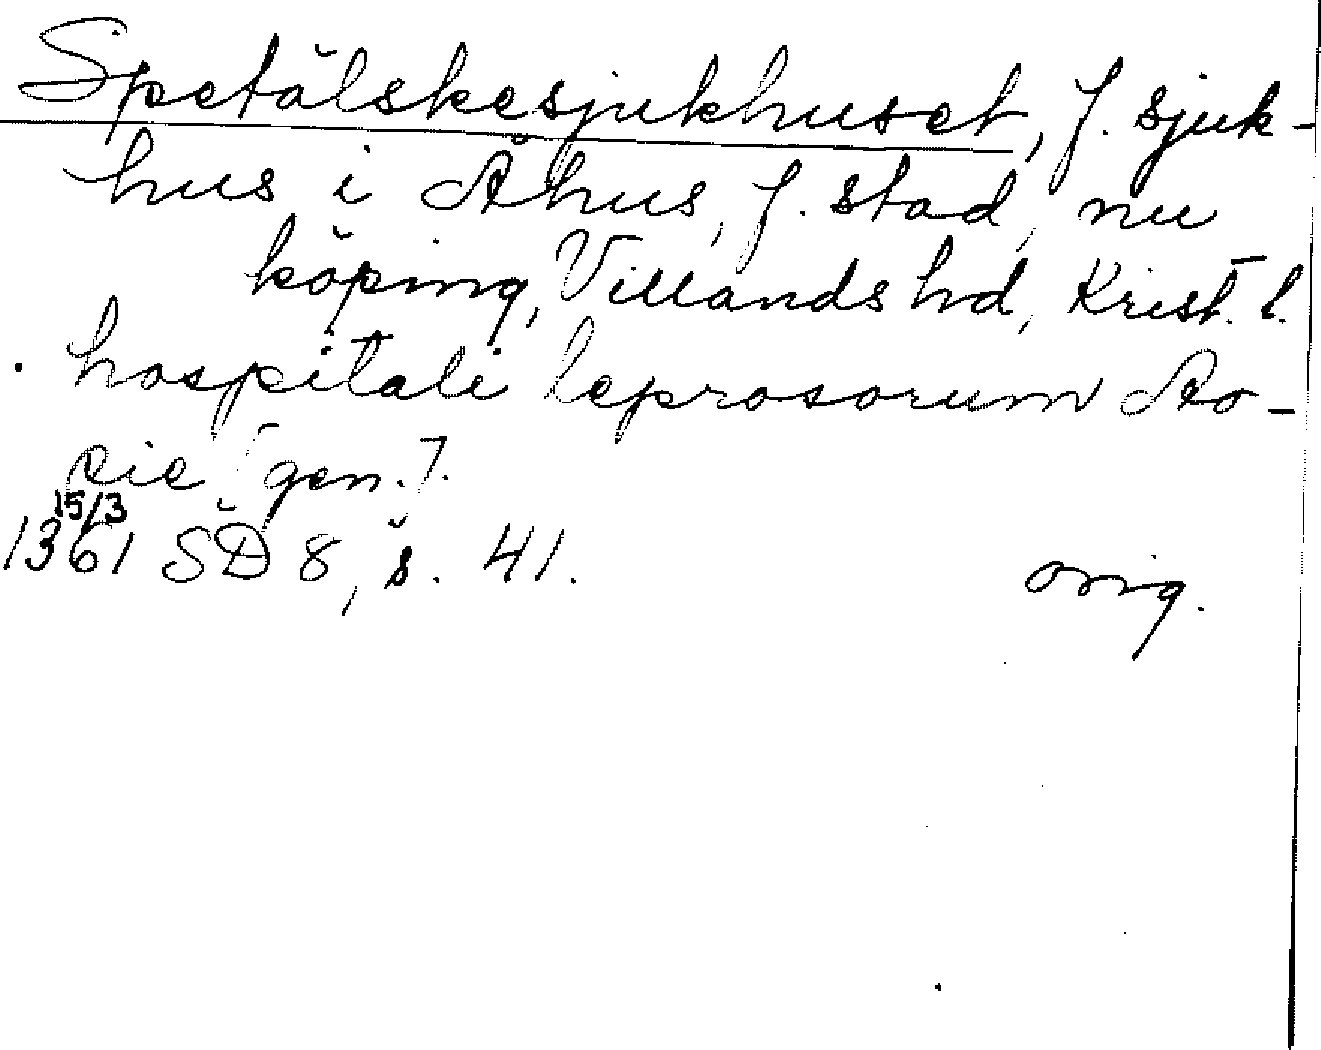 Spetälskesjukhuset, f. sjuk-
hus i Åhus, f. stad, nu
köping, Villands hd, Krist. l.
. hospitali leprosorum Ao-
sie [gen.].
15/3
1361 SD 8, s. 41.
orig.